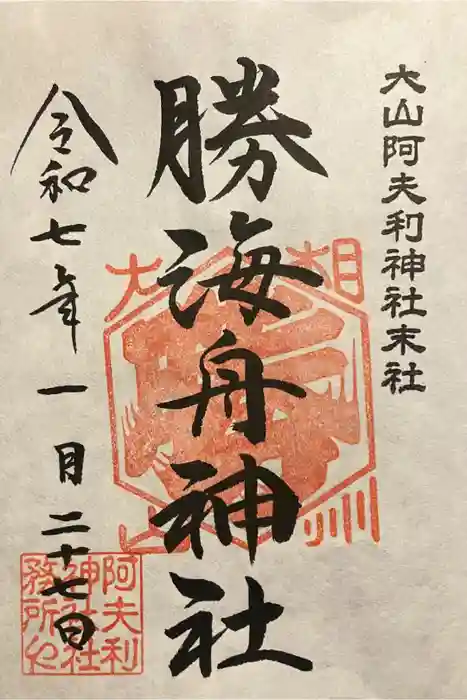 大山阿夫利神社末社
勝海舟神社
令和七年一月二十七日
相州
大山
阿夫利
神社社
務所之